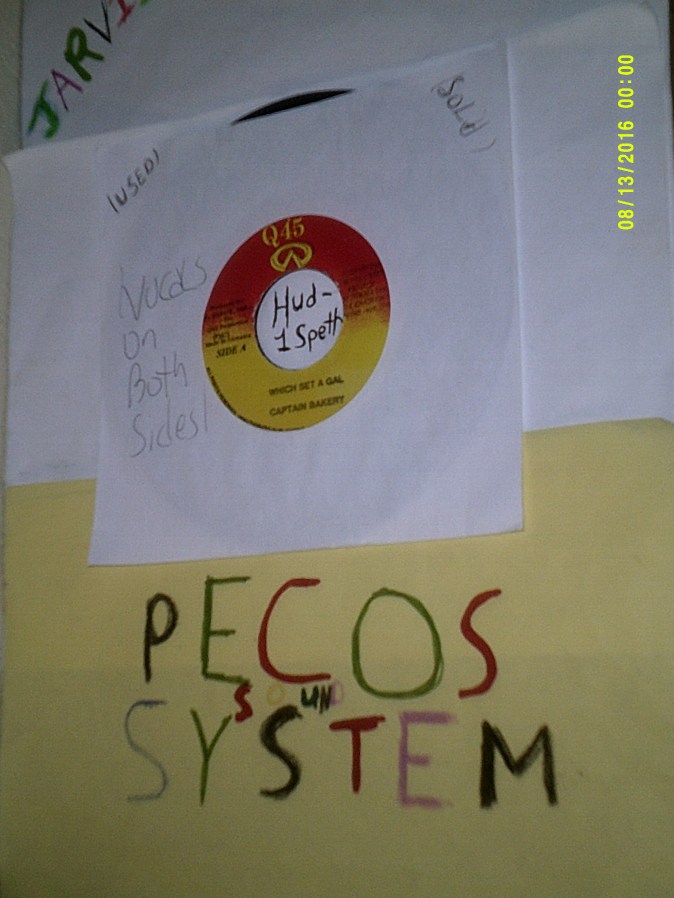 JARVI
08/13/2016 00:00
(SOLID)
(USED)
(Vocals
On
Both
Sides)
Q45
Hud-
1 Speth
SIDE A
WHICH SET A GAL
CAPTAIN BAKERY
PECOS
SOUND
SYSTEM